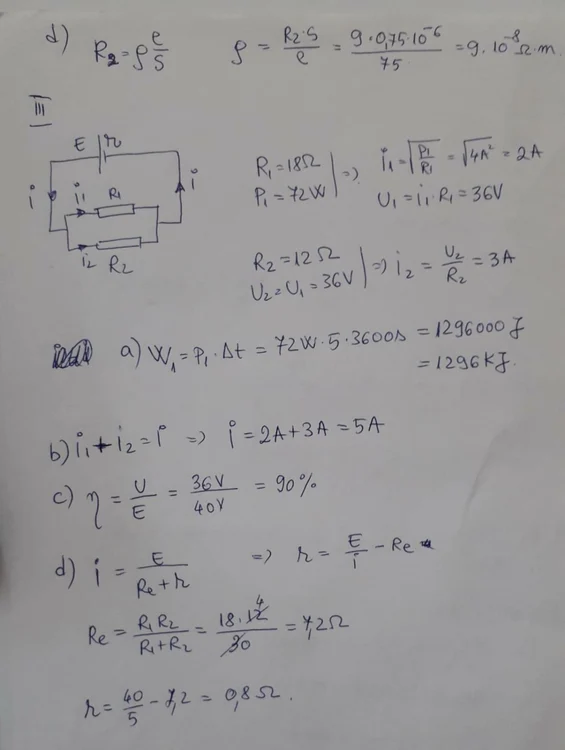 d) R₂ = ρ ℓ/S ρ = R₂·S/ℓ = 9·0,75·10⁻⁶/75 = 9·10⁻⁸ Ω·m.
III
E r
i i₁ R₁ i
i₂ R₂
R₁ = 18Ω
P₁ = 72W | => i₁ = √(P₁/R₁) = √4A² = 2A
U₁ = i₁·R₁ = 36V
R₂ = 12Ω
U₂ = U₁ = 36V | => i₂ = U₂/R₂ = 3A
a) W₁ = P₁·Δt = 72W·5·3600s = 1296000 J
= 1296KJ.
b) i₁ + i₂ = i => i = 2A + 3A = 5A
c) η = U/E = 36V/40V = 90%
d) i = E/(Re + r) => r = E/i - Re
Re = R₁R₂/(R₁+R₂) = 18·12/30 = 7,2Ω
4
r = 40/5 - 7,2 = 0,8Ω.